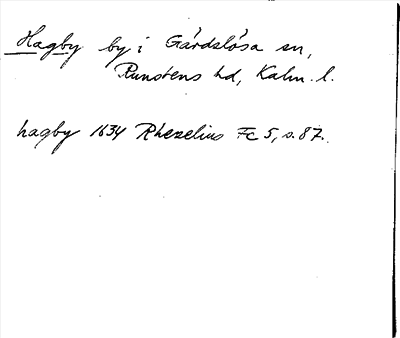 Hagby by i Gärdslösa sn,
Runstens hd, Kalm. l.
hagby 1634 Rhezelius Fc 5, s. 87.